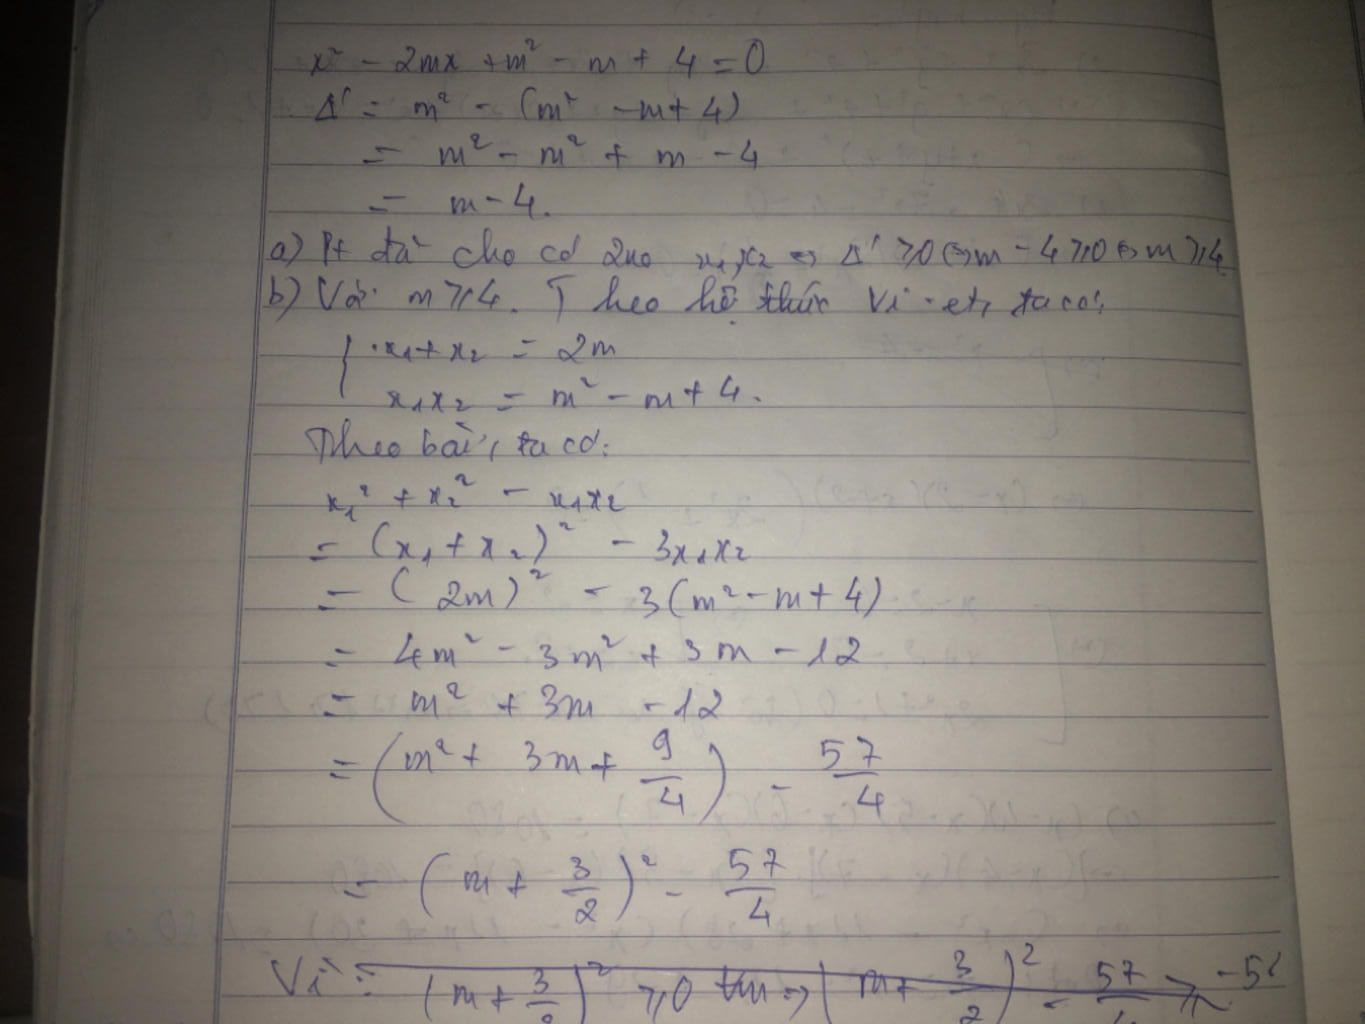 x² - 2mx + m² - m + 4 = 0
Δ' = m² - (m² - m + 4)
= m² - m² + m - 4
= m - 4.
a) Pt đã cho có 2no x₁, x₂ ⇔ Δ' ⩾ 0 ⇔ m - 4 ⩾ 0 ⇔ m ⩾ 4
b) Với m ⩾ 4. Theo hệ thức Vi-et, ta có:
{ x₁ + x₂ = 2m
x₁x₂ = m² - m + 4.
Theo bài, ta có:
x₁² + x₂² - x₁x₂
= (x₁ + x₂)² - 3x₁x₂
= (2m)² - 3(m² - m + 4)
= 4m² - 3m² + 3m - 12
= m² + 3m - 12
= (m² + 3m + 9/4) - 57/4
= (m + 3/2)² - 57/4
Vì: (m + 3/2)² ⩾ 0 ⇒ (m + 3/2)² - 57/4 ⩾